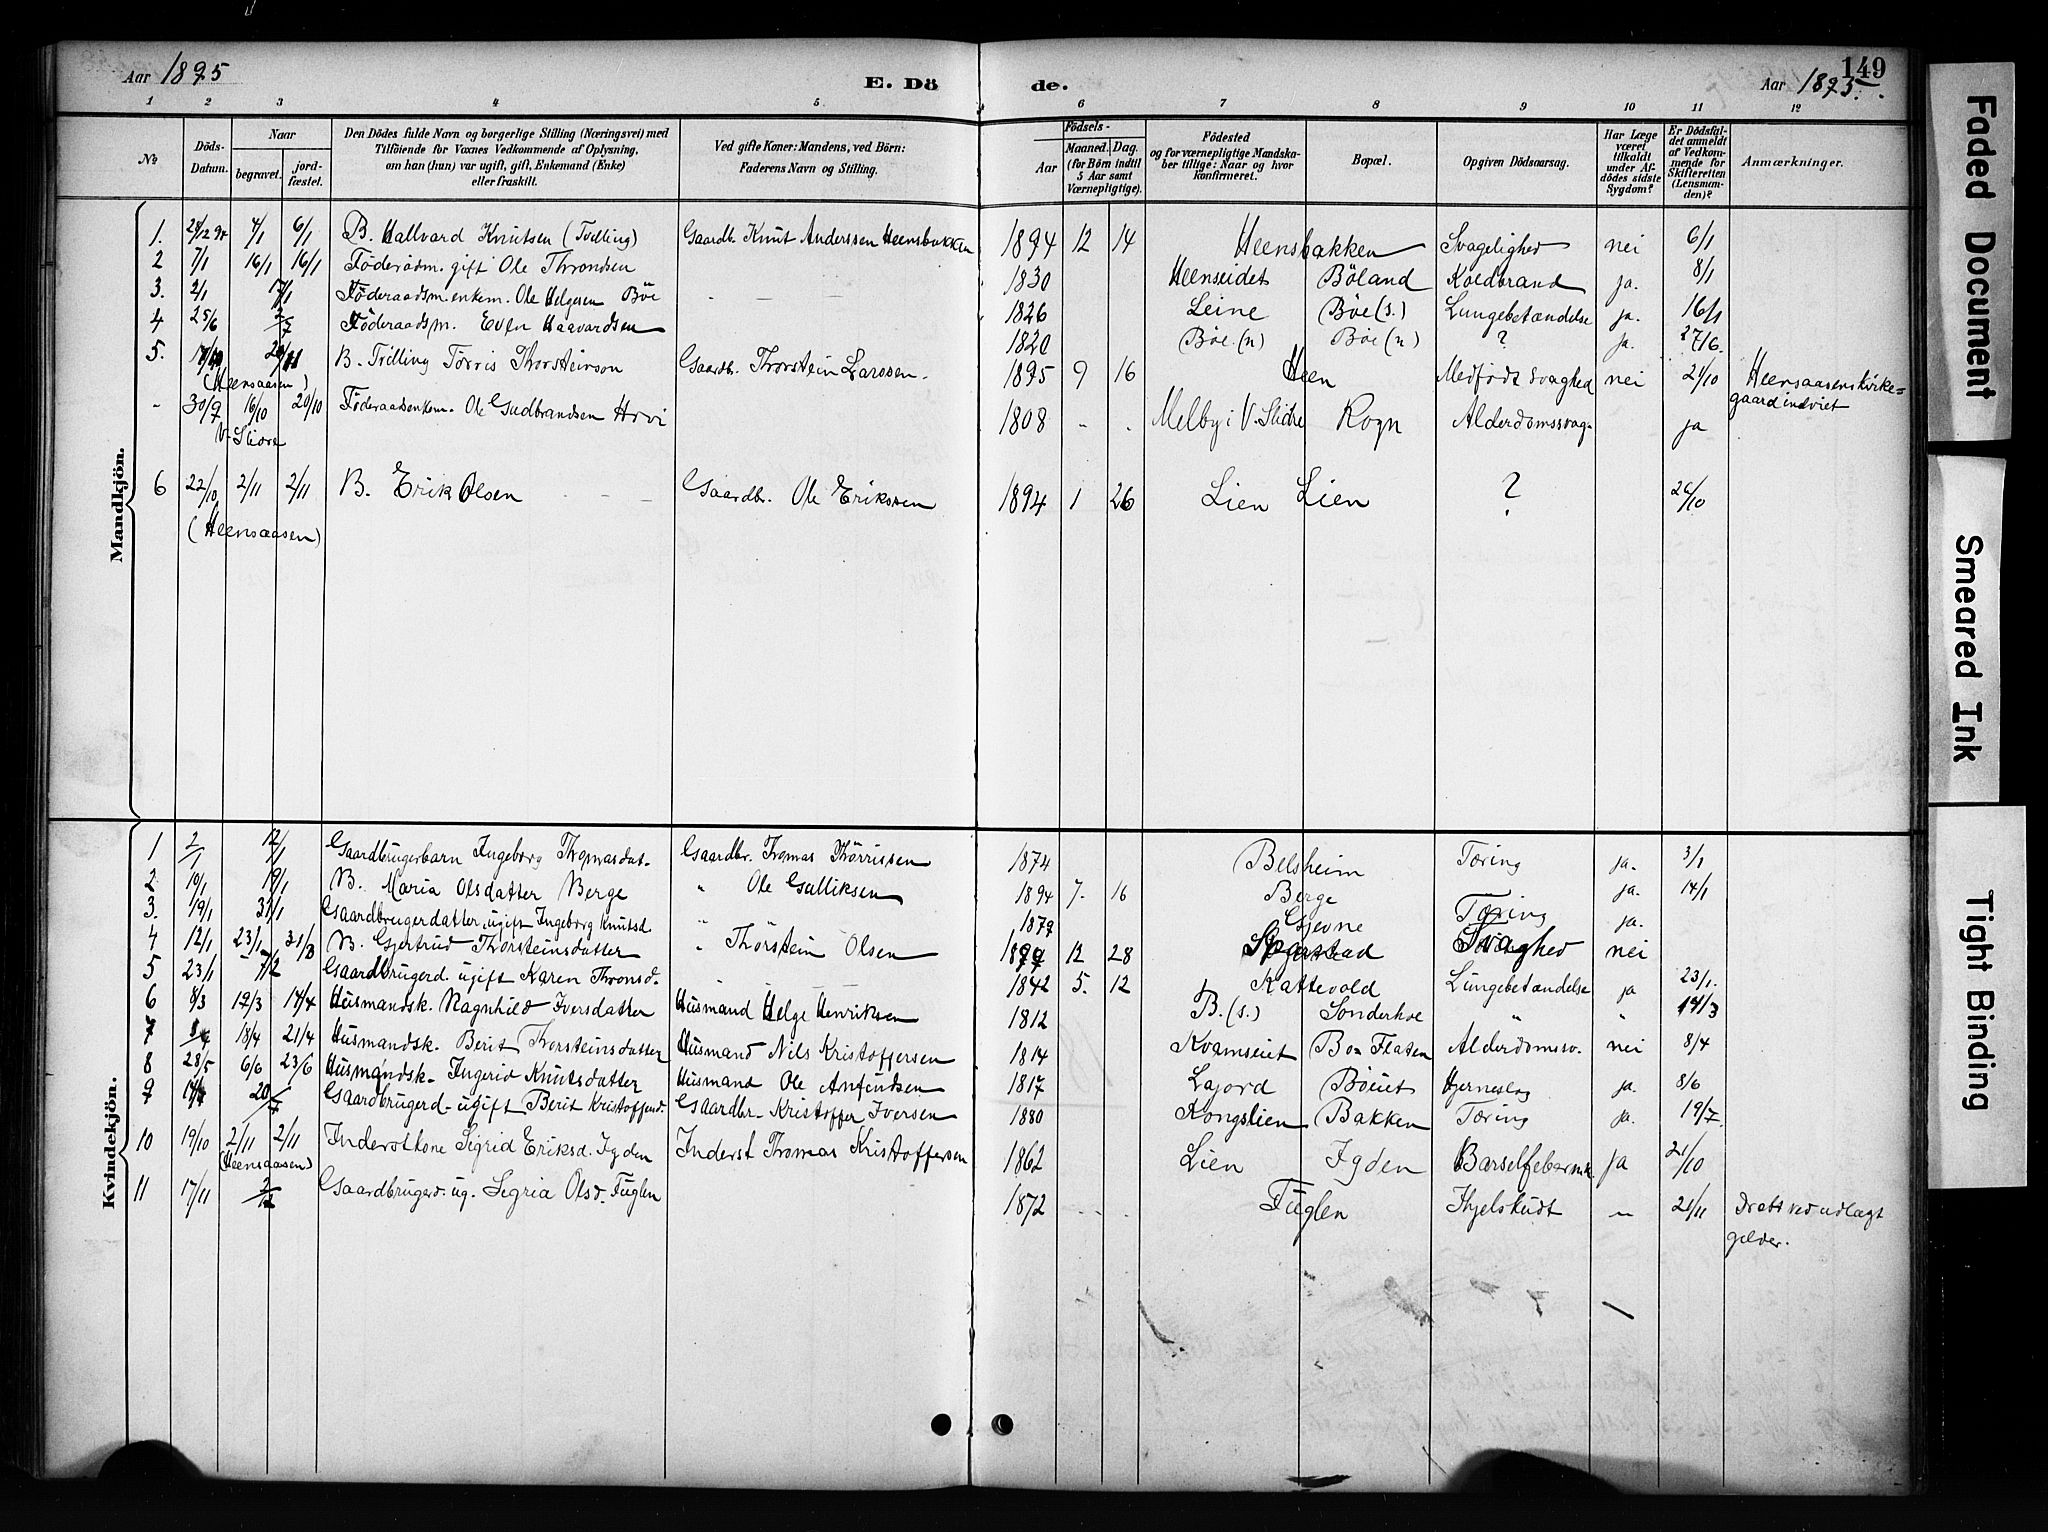 Aar 1895
E. Dö
de.
Aar 1895.
149
1 2 3 4 5 6 7 8 9 10 11 12
No
Döds-Datum.
Naar
begravet.
jord-fæstet.
Den Dödes fulde Navn og borgerlige Stilling (Næringsvei) med
Tilföiende for Voxnes Vedkommende af Oplysning,
om han (hun) var ugift, gift, Enkemand (Enke)
eller fraskilt.
Ved gifte Koner: Mandens, ved Börn:
Faderens Navn og Stilling.
Födsels-
Aar
Maaned. Dag.
(for Börn indtil
5 Aar samt
Værnepligtige).
Födested
og for værnepligtige Mandska-
ber tillige: Naar og hvor
konfirmeret.
Bopæl.
Opgiven Dödsaarsag.
Har Læge
været
tilkaldt
under Af-
dödes sidste
Sygdom?
Er Dödsfal-
det anmeldt
af Vedkom-
mende for
Skifteretten
(Lensman-
den)?
Anmærkninger.
Mandkjön.
1. 4/1 6/1 B. Hallvard Knutsen (Tvilling) Gaardbr. Knut Anderssen Heensbakken 1894 12 14 Heensbakken Svagelighed nei 6/1
2 7/1 16/1 16/1 Föderådm. gift Ole Throndsen 1830 Heenseidet Böland Koldbrand ja. 8/1
3. 2/1 17/1 Föderaadsm. enkem. Ole Helgesen Böe 1826 Leine Böe (s.) Lungebetændelse ja. 16/1
4 25/6 2/7 Föderaadsm. Even Haavardsen 1820 Böe (n) Böe (n) ? ja. 27/6.
5. B. Trilling Törris Thorsteinson Gaardbr. Thorstein Larssen. 1895 9 16 Heen Medfödt Svaghed nei 21/10 Heensaasens kirke-
gaard indviet
(Heensaasen)
- 30/9 16/10 20/10 Föderaadsenkem. Ole Gudbrandsen Hovi 1808 - - Melby i V. Slidre Rogn Alderdomssvag- ja
V. Slidre
6 22/10 2/11 2/11 B. Erik Olsen Gaardbr. Ole Erikssen 1894 1 26 Lien Lien ? 26/10
(Heensaasen)
Kvindekjön.
1 2/1 12/1 Gaardbrugerbarn Ingeborg Thomasdat. Gaardbr. Thomas Thörrissen 1874 Belsheim Tæring ja. 3/1
2. 10/1 19/1 B. Maria Olsdatter Berge " Ole Gulliksen 1894 7. 16 Berge ja. 14/1
3. 19/1 31/1 Gaardbrugerdatter ugift Ingeborg Knutsd " 1879 Gjevne Tæring ja.
4 12/1 23/1 31/3 B. Gjertrud Thorsteinsdatter " Thorstein Olsen 12 28 Svaghed nei
5 23/1 7/2 Gaardbrugerd. ugift Karen Thronsd. 1842 5. 12 Kattevold Lungebetændelse ja 23/1.
6 8/3 19/3 14/4 Husmandsk. Ragnhild Iversdatter Husmand Helge Henriksen 1812 B. (s.) Sonderhoe " " 14/3
7 18/4 21/4 Husmandsk. Berit Thorsteinsdatter Husmand Nils Kristoffersen 1814 Kvamseiet Böe Flaten Alderdomssv. nei 8/4
8 28/5 6/6 23/6 Husmandsk. Ingerid Knutsdatter Husmand Ole Anfindsen 1817 Lajord Böeiet Hjerneslag ja. 8/6
9 20/7 Gaardbrugerd. ugift Berit Kristoffersd. Gaardbr. Kristoffer Iversen 1880 Kongslien Bakken Tæring ja. 19/7.
10 19/10 2/11 2/11 Inderstkone Sigrid Eriksd. Igden Inderst Thomas Kristoffersen 1862 Lien Igden Barselfeber ja 21/10
(Heensaasen)
11 17/11 2/12 Gaardbrugerd. ug. Segria Olsd. Fuglen 1872 Fuglen Ihjelskudt 21/11 Dræbt ved udlægt
gelder.
Faded Document
Smeared Ink
Tight Binding